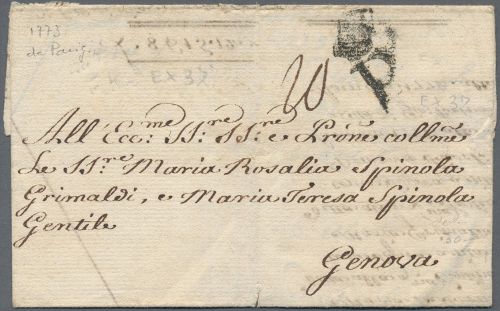 1773
da Parig.
EX 37
20
P
EX 37
All' Ecc:me SS:re SS:re e Prône collme
Le SS:re Maria Rosalia Spinola
Grimaldi, e Maria Teresa Spinola
Gentile
Genova